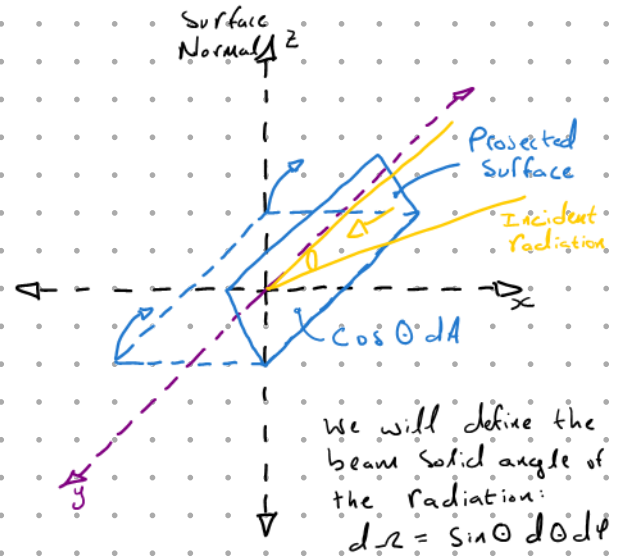 Surface
Normal
z
Projected
Surface
Incident
radiation
x
Cos θ dA
y
We will define the
beam solid angle of
the radiation:
dΩ = Sinθ dθ dφ